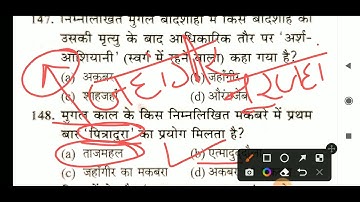 147. निम्नलिखित मुगल बादशाहों में किस बादशाह को
उसकी मृत्यु के बाद आधिकारिक तौर पर 'अर्श-
आशियानी' (स्वर्ग में रहने वाला) कहा गया है?
(a) अकबर (b) जहाँगीर
(c) शाहजहाँ (d) औरंगजेब
148. मुगल काल के किस निम्नलिखित मकबरे में प्रथम
बार 'पित्रादुरा' का प्रयोग मिलता है?
(a) ताजमहल (b)
(c) जहाँगीर का मकबरा (d) अकबर